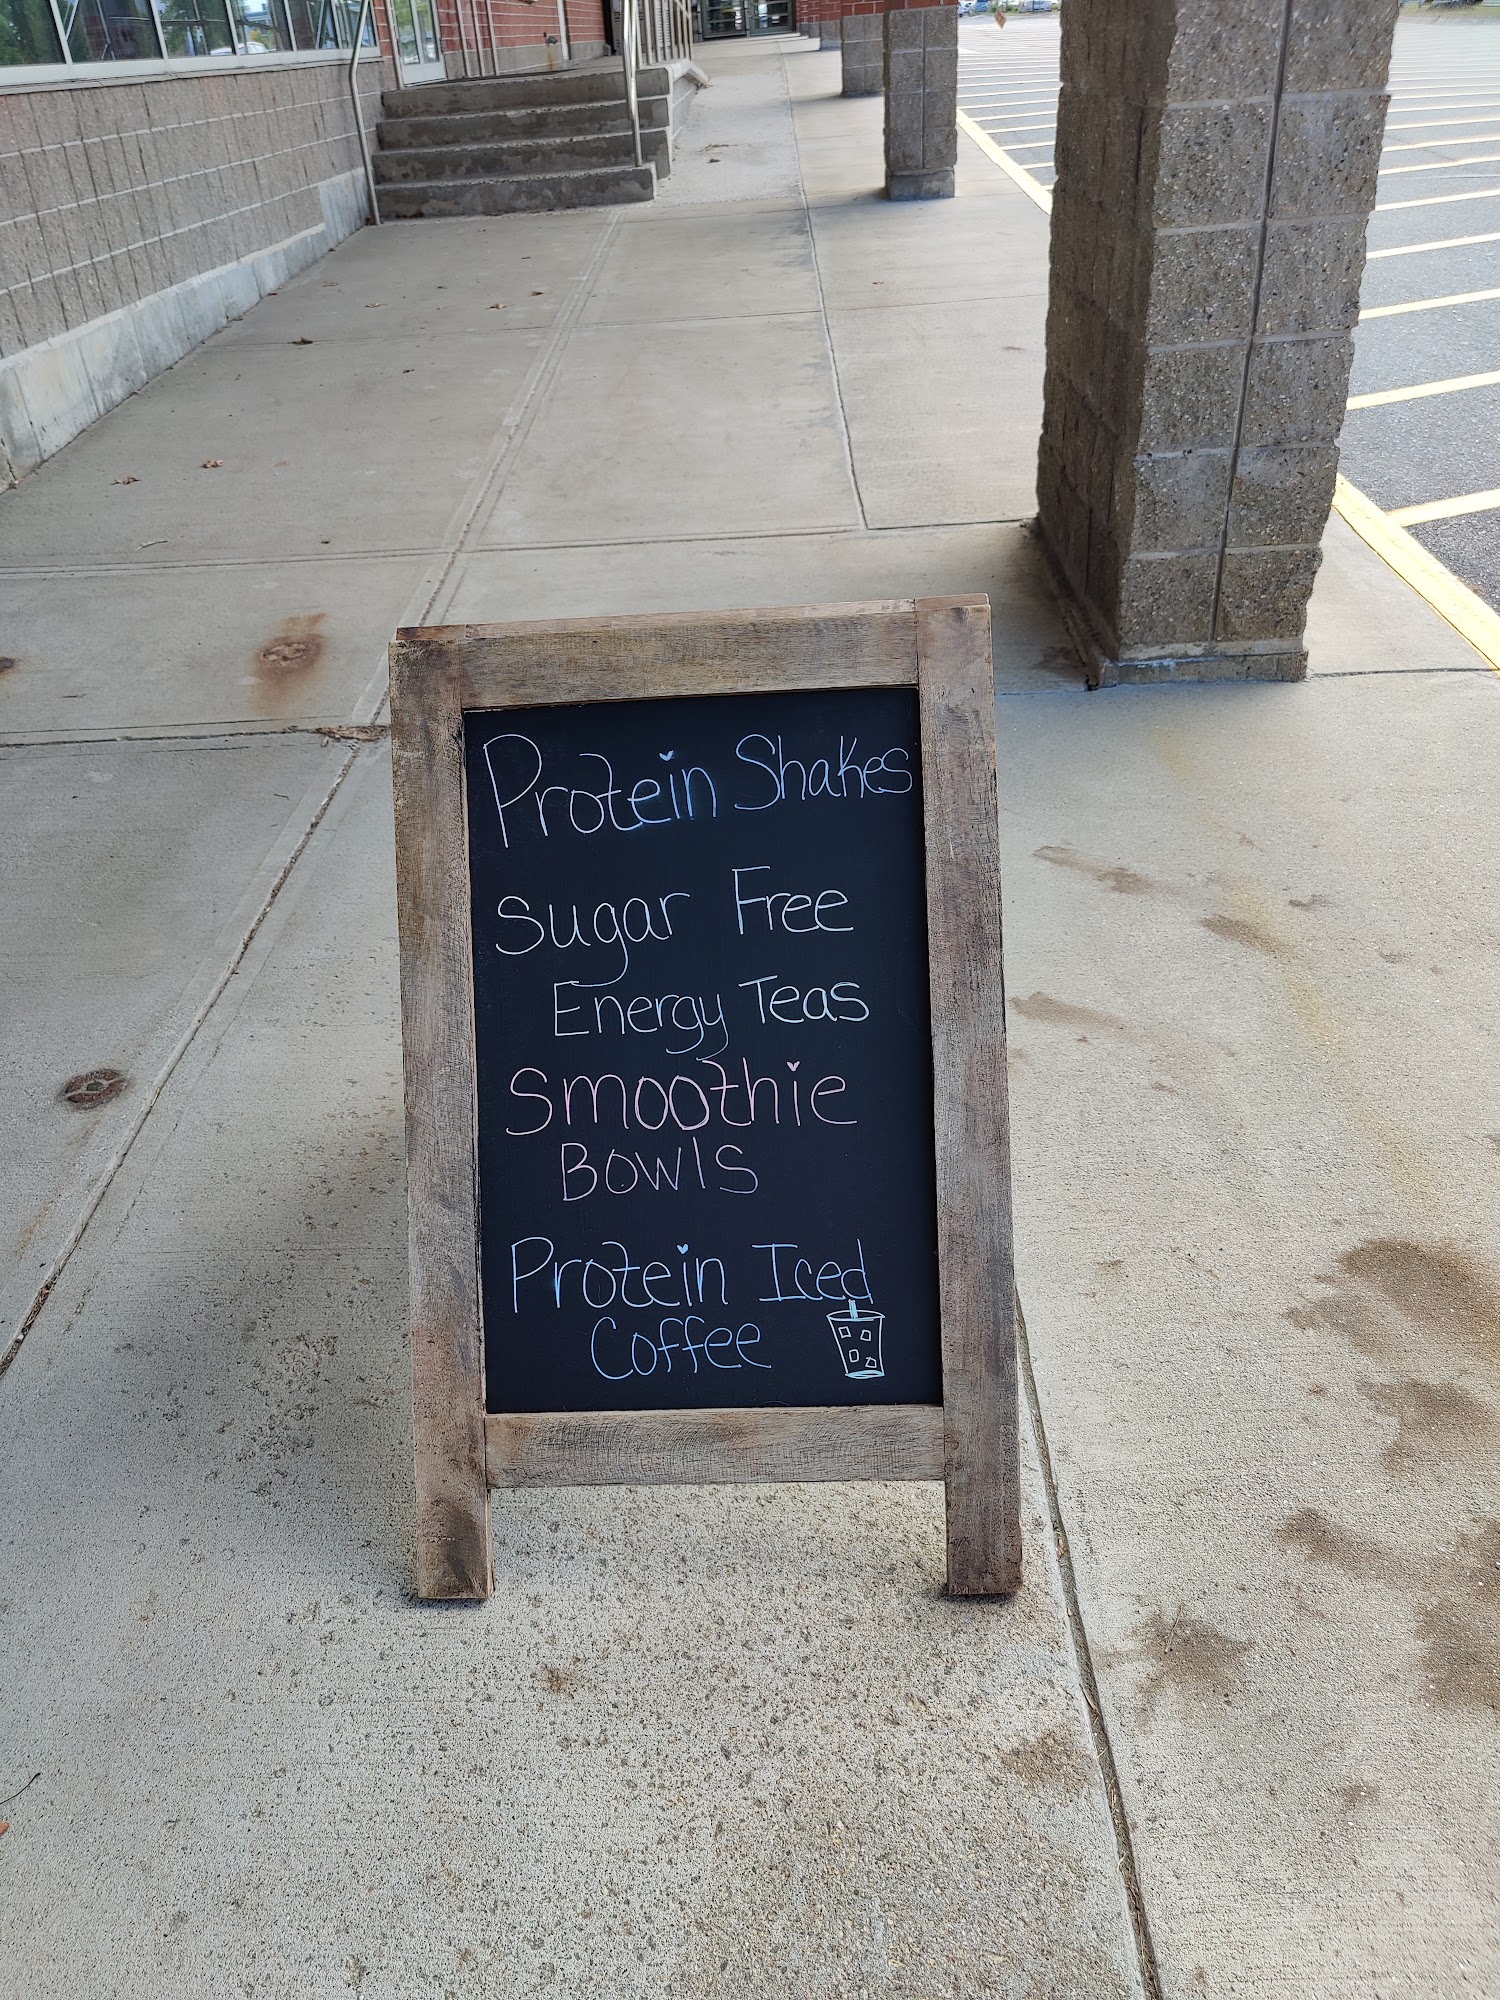 Protein Shakes
Sugar Free
Energy Teas
Smoothie
Bowls
Protein Iced
Coffee